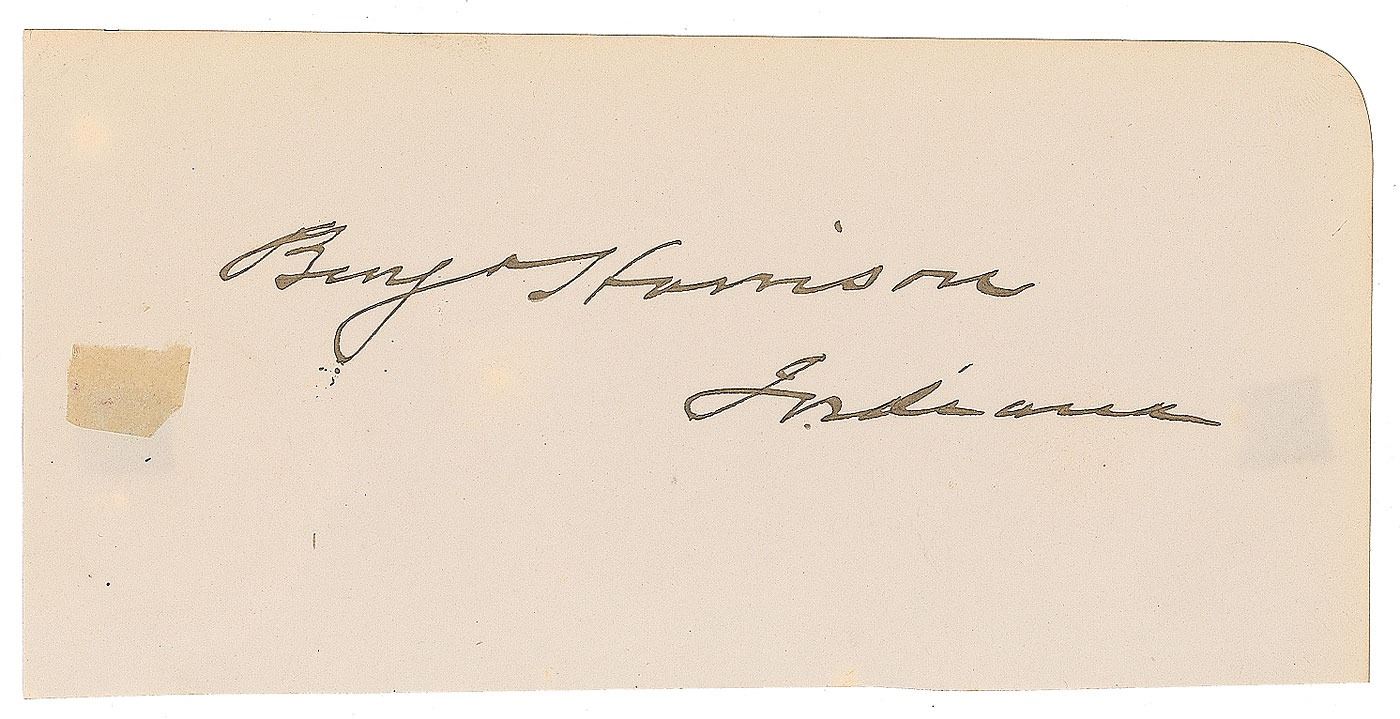 Benj Harrison
Indiana